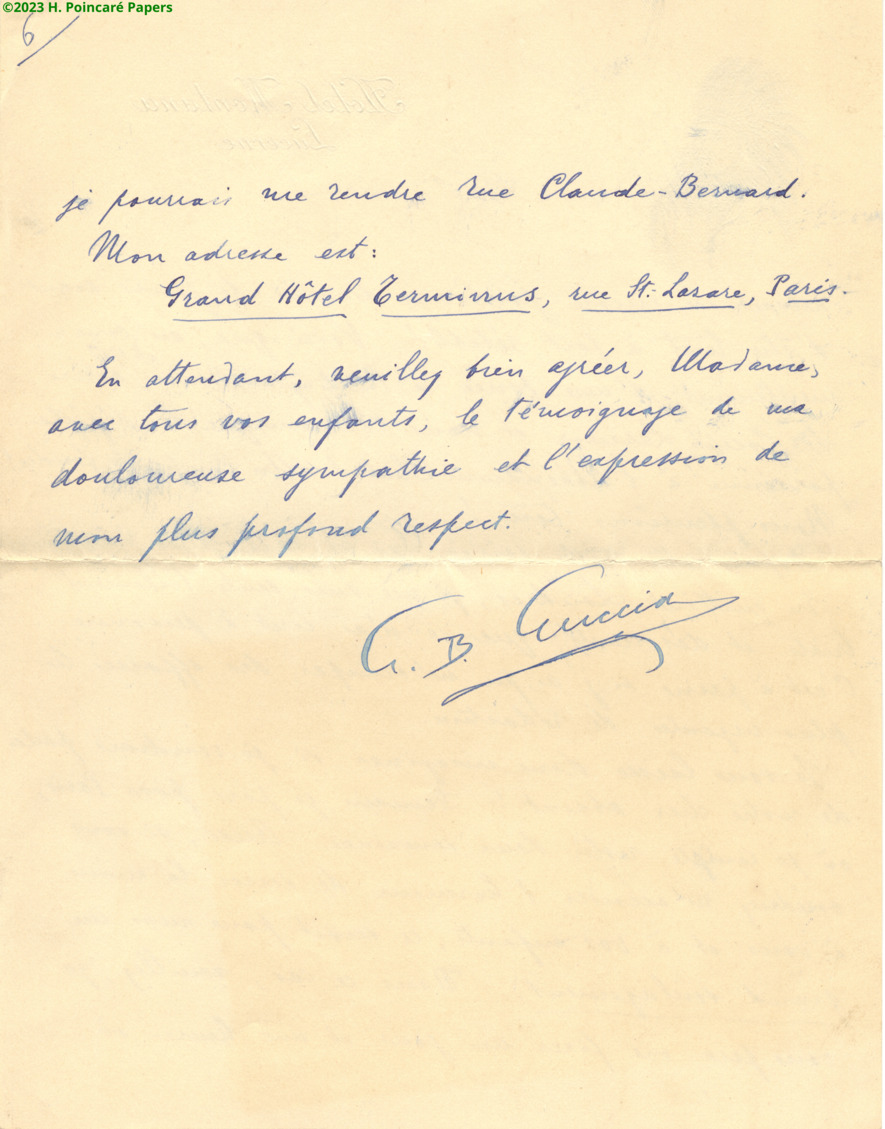 ©2023 H. Poincaré Papers
6
Hôtel Montana
Lucerne
je pourrais me rendre rue Claude-Bernard.
Mon adresse est:
Grand Hôtel Terminus, rue St.-Lazare, Paris.
En attendant, veuillez bien agréer, Madame,
avec tous vos enfants, le témoignage de ma
douloureuse sympathie et l'expression de
mon plus profond respect.
G. B. Guccia